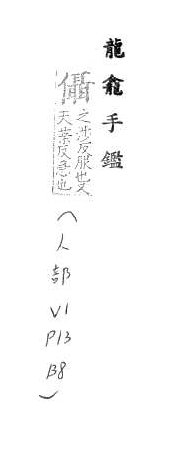 龍龕手鑑
儠
之涉反服也又
天葉反惡也
(人部
V1
P13
B8)